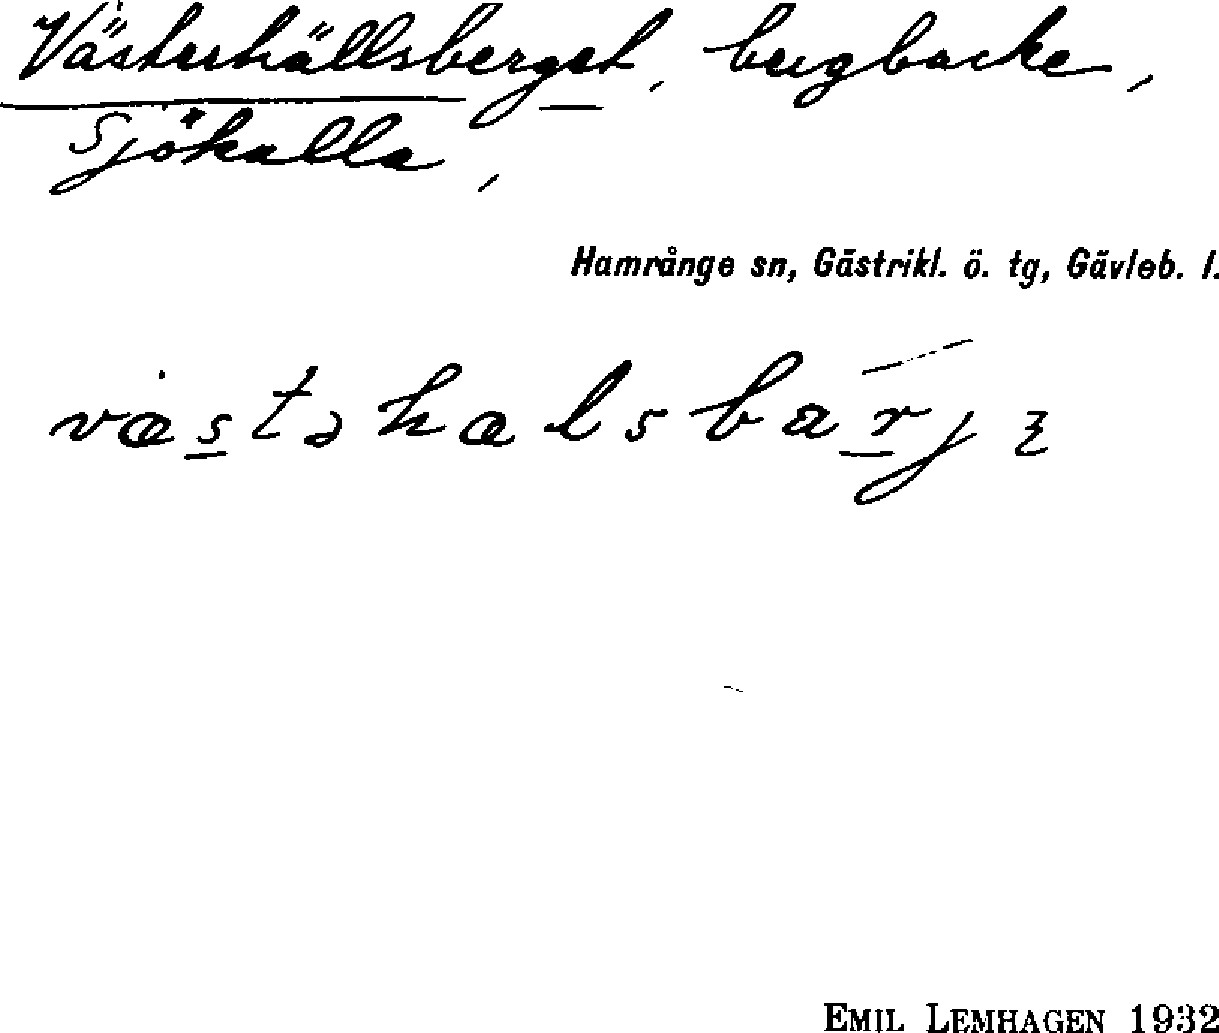 Västerhällsberget, bergbacke,
Sjökalla,
Hamrånge sn, Gästrikl. ö. tg, Gävleb. l.
EMIL LEMHAGEN 1932